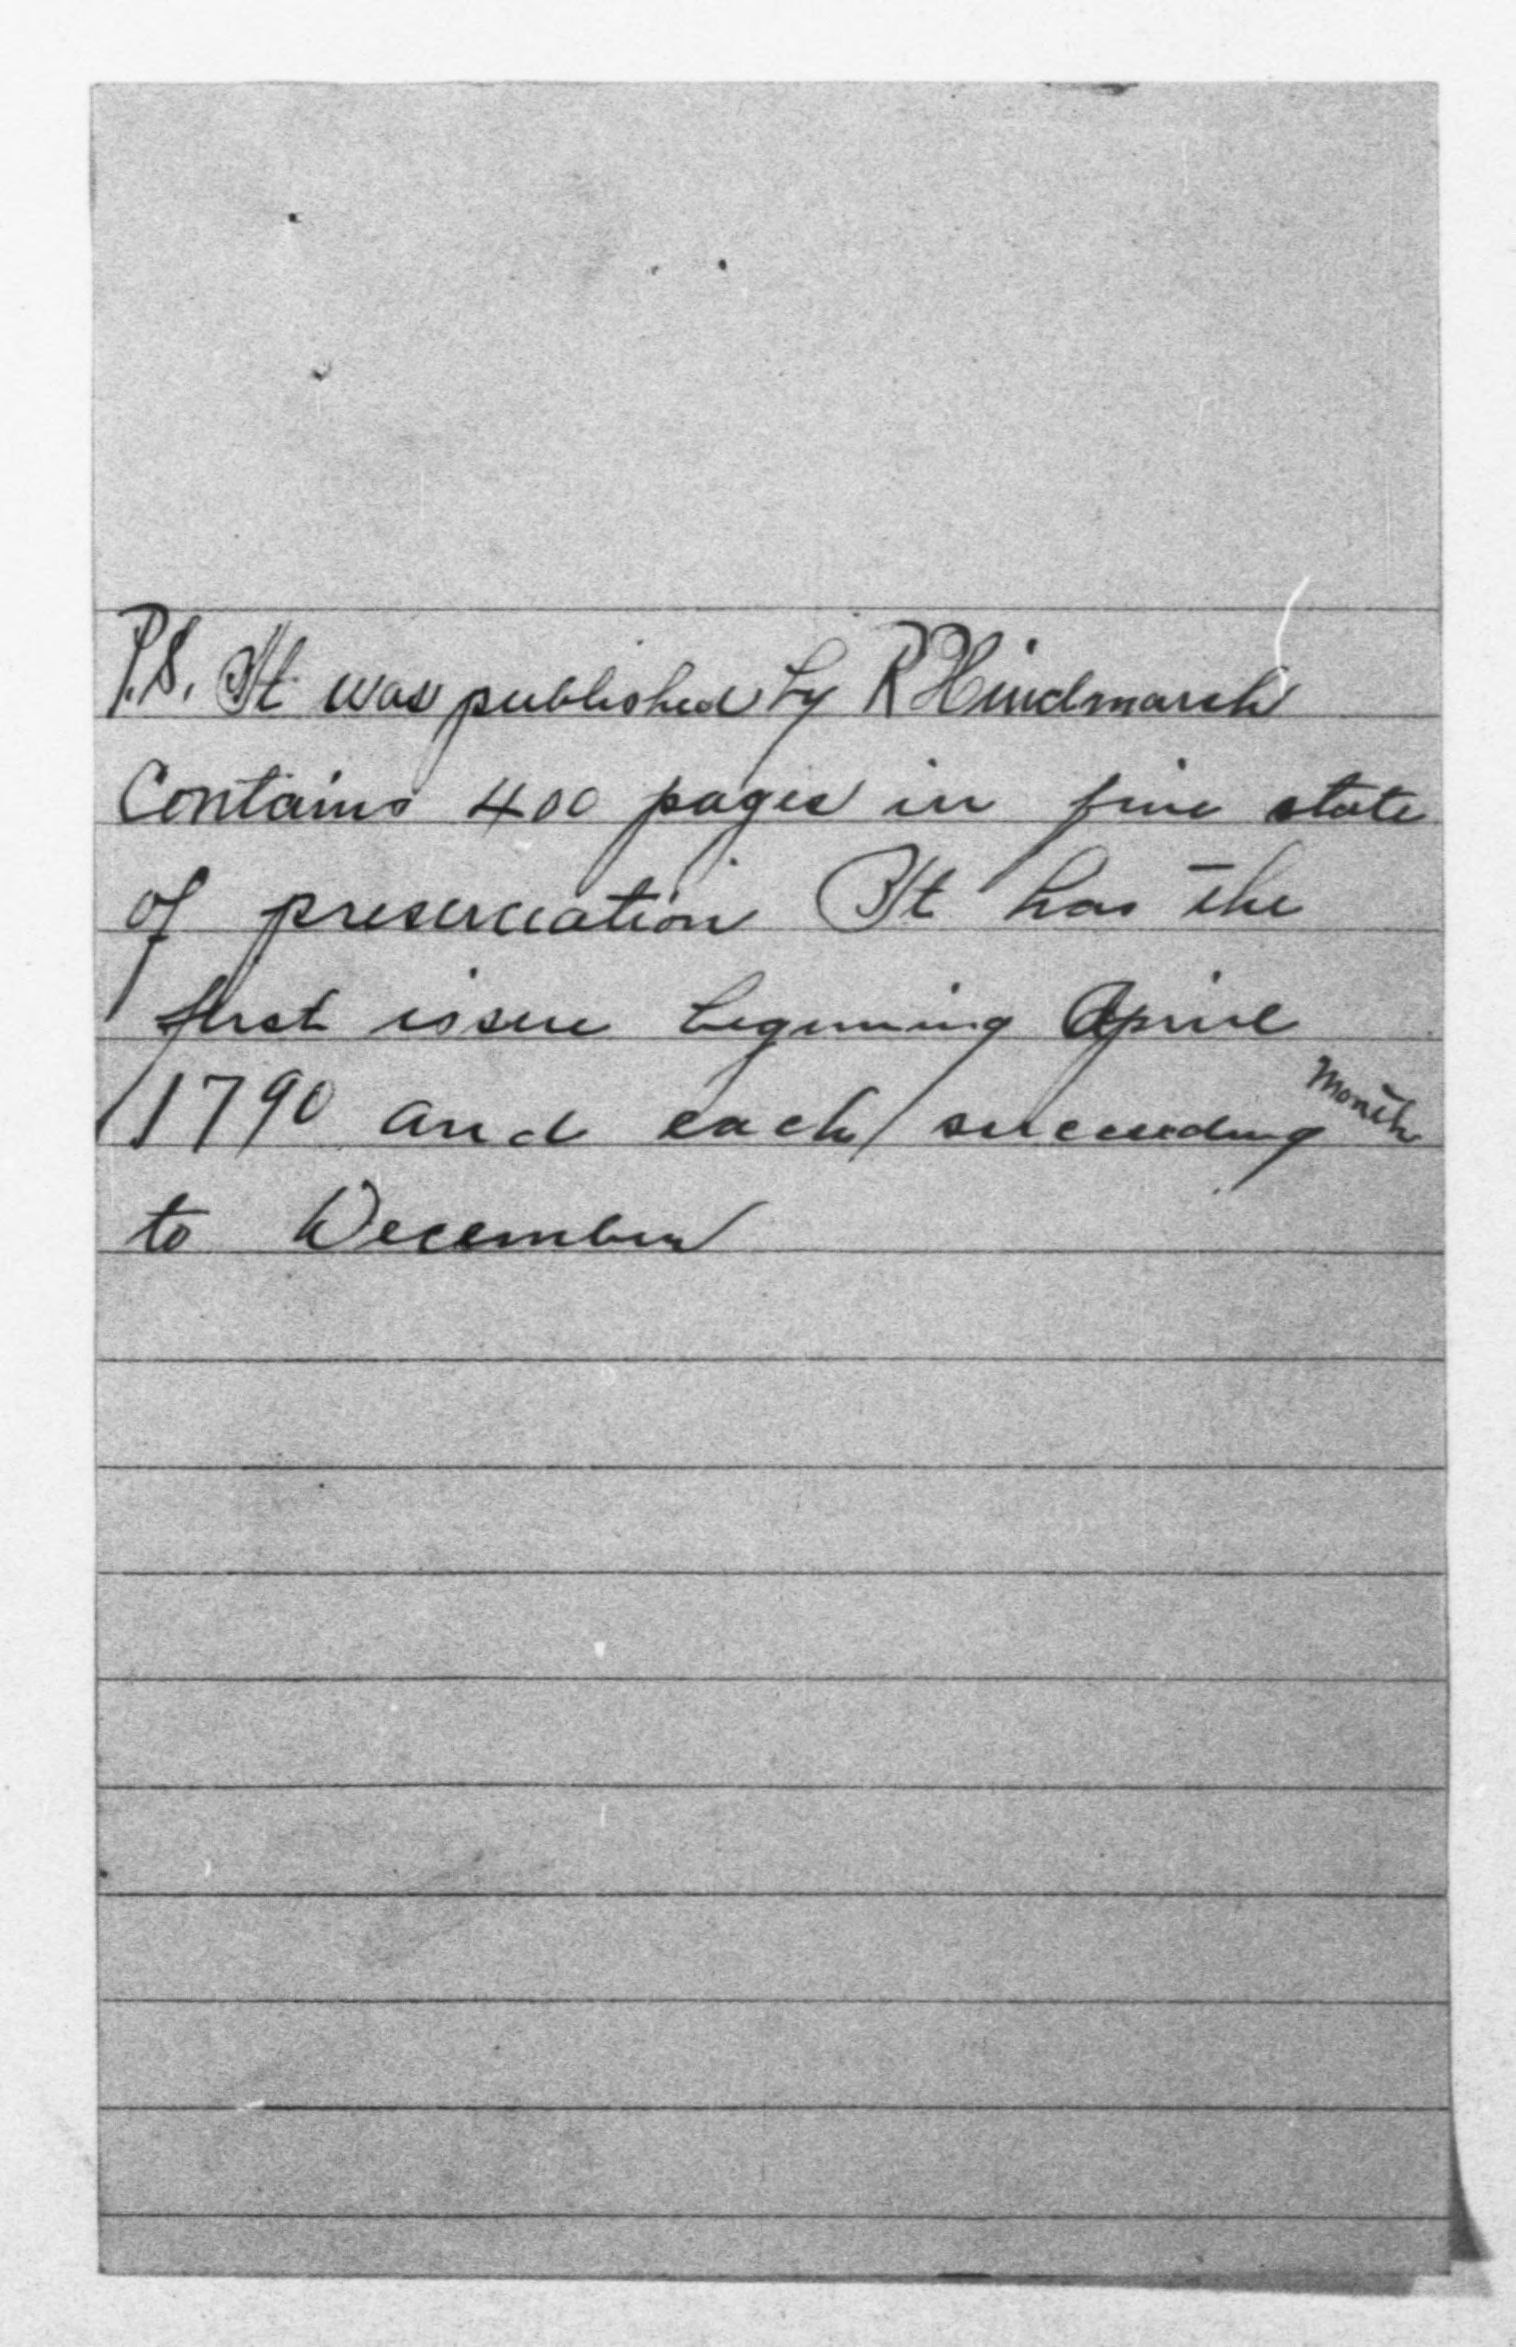 P.S. It was published by R Hindmarsh
Contains 400 pages in fine state
of preservation It has the
first issue begining April
1790 and each succeeding Month
to December